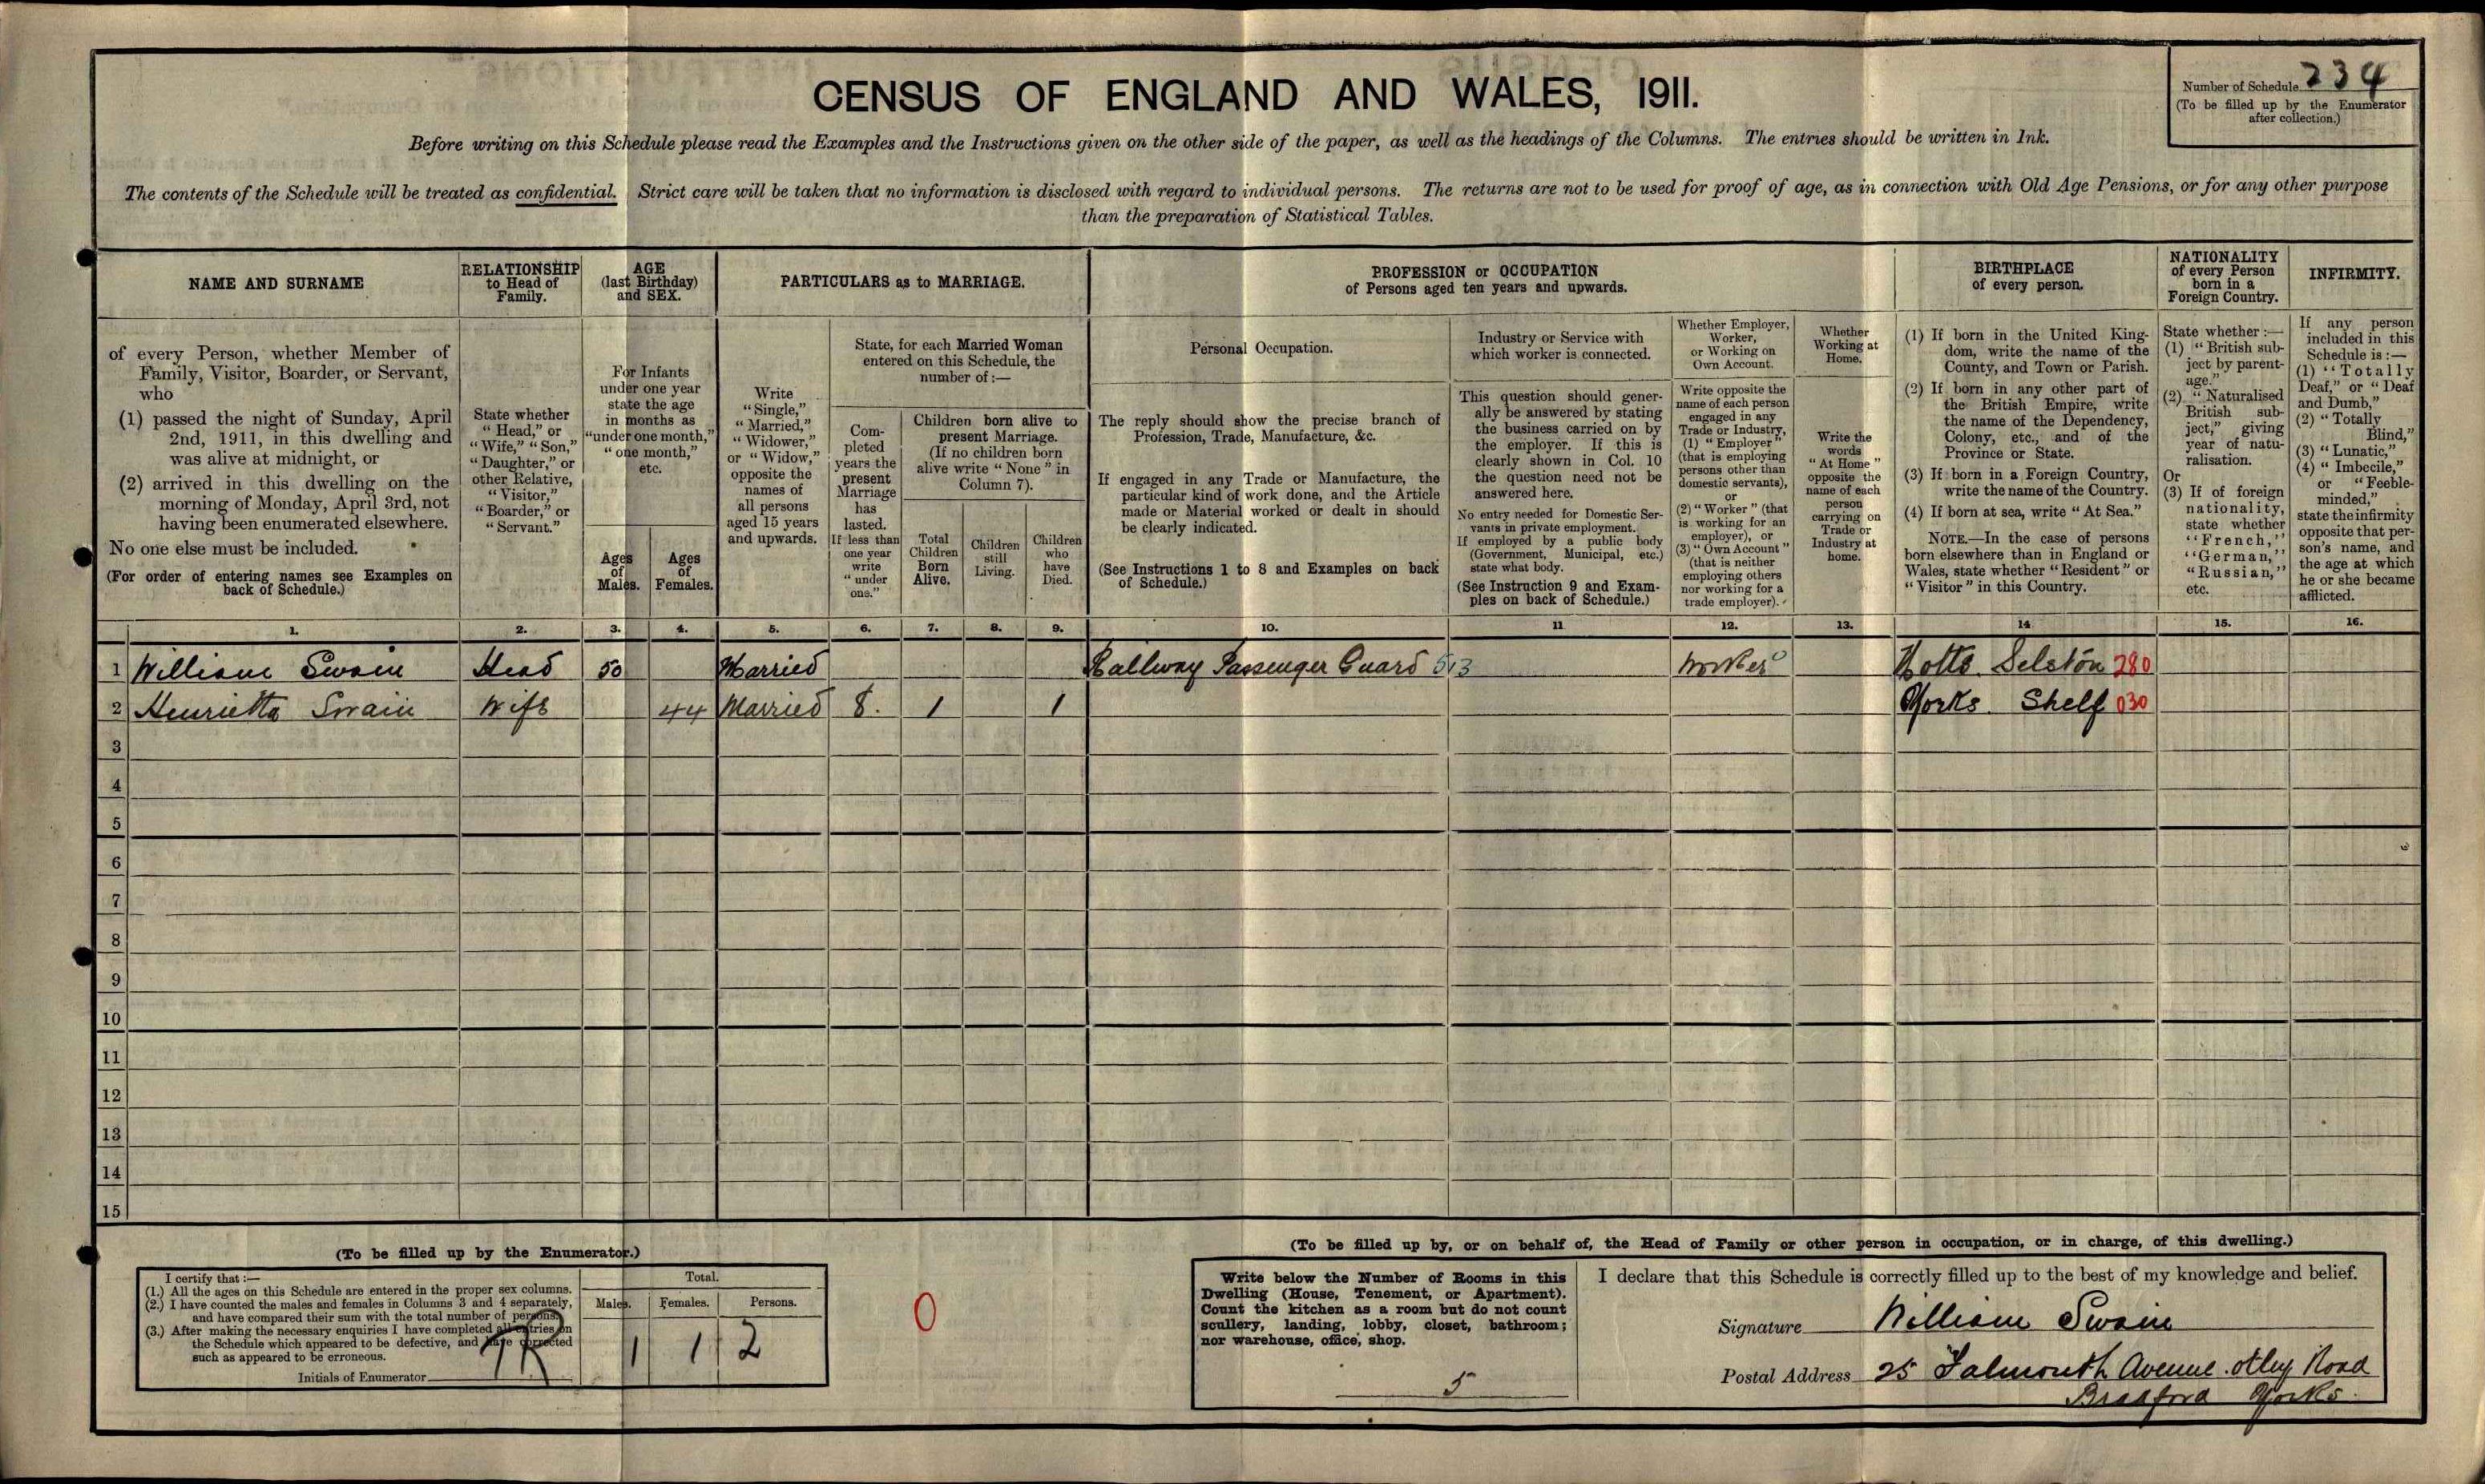 CENSUS OF ENGLAND AND WALES, 1911.
Number of Schedule 234
(To be filled up by the Enumerator
after collection.)
Before writing on this Schedule please read the Examples and the Instructions given on the other side of the paper, as well as the headings of the Columns. The entries should be written in Ink.
The contents of the Schedule will be treated as confidential. Strict care will be taken that no information is disclosed with regard to individual persons. The returns are not to be used for proof of age, as in connection with Old Age Pensions, or for any other purpose
than the preparation of Statistical Tables.
NAME AND SURNAME
of every Person, whether Member of
Family, Visitor, Boarder, or Servant,
who
(1) passed the night of Sunday, April
2nd, 1911, in this dwelling and
was alive at midnight, or
(2) arrived in this dwelling on the
morning of Monday, April 3rd, not
having been enumerated elsewhere.
No one else must be included.
(For order of entering names see Examples on
back of Schedule.)
RELATIONSHIP
to Head of
Family.
State whether
"Head," or
"Wife," "Son,"
"Daughter," or
other Relative,
"Visitor,"
"Boarder," or
"Servant."
AGE
(last Birthday)
and SEX.
For Infants
under one year
state the age
in months as
"under one month,"
"one month,"
etc.
Ages
of
Males.
Ages
of
Females.
PARTICULARS as to MARRIAGE.
Write
"Single,"
"Married,"
"Widower,"
or "Widow,"
opposite the
names of
all persons
aged 15 years
and upwards.
State, for each Married Woman
entered on this Schedule, the
number of:—
Com-
pleted
years the
present
Marriage
has
lasted.
If less than
one year
write
"under
one."
Children born alive to
present Marriage.
(If no children born
alive write "None" in
Column 7).
Total
Children
Born
Alive.
Children
still
Living.
Children
who
have
Died.
PROFESSION or OCCUPATION
of Persons aged ten years and upwards.
Personal Occupation.
The reply should show the precise branch of
Profession, Trade, Manufacture, &c.
If engaged in any Trade or Manufacture, the
particular kind of work done, and the Article
made or Material worked or dealt in should
be clearly indicated.
(See Instructions 1 to 8 and Examples on back
of Schedule.)
Industry or Service with
which worker is connected.
This question should gener-
ally be answered by stating
the business carried on by
the employer. If this is
clearly shown in Col. 10
the question need not be
answered here.
No entry needed for Domestic Ser-
vants in private employment.
If employed by a public body
(Government, Municipal, etc.)
state what body.
(See Instruction 9 and Exam-
ples on back of Schedule.)
Whether Employer,
Worker,
or Working on
Own Account.
Write opposite the
name of each person
engaged in any
Trade or Industry,
(1) "Employer"
(that is employing
persons other than
domestic servants),
or
(2) "Worker" (that
is working for an
employer), or
(3) "Own Account"
(that is neither
employing others
nor working for a
trade employer).
Whether
Working at
Home.
Write the
words
"At Home"
opposite the
name of each
person
carrying on
Trade or
Industry at
home.
BIRTHPLACE
of every person.
(1) If born in the United King-
dom, write the name of the
County, and Town or Parish.
(2) If born in any other part of
the British Empire, write
the name of the Dependency,
Colony, etc., and of the
Province or State.
(3) If born in a Foreign Country,
write the name of the Country.
(4) If born at sea, write "At Sea."
NOTE.—In the case of persons
born elsewhere than in England or
Wales, state whether "Resident" or
"Visitor" in this Country.
NATIONALITY
of every Person
born in a
Foreign Country.
State whether:—
(1) "British sub-
ject by parent-
age."
(2) "Naturalised
British sub-
ject," giving
year of natu-
ralisation.
Or
(3) If of foreign
nationality,
state whether
"French,"
"German,"
"Russian,"
etc.
INFIRMITY.
If any person
included in this
Schedule is:—
(1) "Totally
Deaf," or "Deaf
and Dumb,"
(2) "Totally
Blind,"
(3) "Lunatic,"
(4) "Imbecile,"
or "Feeble-
minded,"
state the infirmity
opposite that per-
son's name, and
the age at which
he or she became
afflicted.
1. 2. 3. 4. 5. 6. 7. 8. 9. 10. 11 12. 13. 14 15. 16.
1 William Swain Head 50 Married Railway Passenger Guard 513 Worker 0 Notts Selston 280
2 Henrietta Swain Wife 44 Married 8. 1 1 Yorks. Shelf 030
3
4
5
6
7
8
9
10
11
12
13
14
15
(To be filled up by the Enumerator.)
I certify that:—
(1.) All the ages on this Schedule are entered in the proper sex columns.
(2.) I have counted the males and females in Columns 3 and 4 separately,
and have compared their sum with the total number of persons.
(3.) After making the necessary enquiries I have completed all entries on
the Schedule which appeared to be defective, and have corrected
such as appeared to be erroneous.
Initials of Enumerator
Total.
Males. Females. Persons.
1 1 2
0
(To be filled up by, or on behalf of, the Head of Family or other person in occupation, or in charge, of this dwelling.)
Write below the Number of Rooms in this
Dwelling (House, Tenement, or Apartment).
Count the kitchen as a room but do not count
scullery, landing, lobby, closet, bathroom;
nor warehouse, office, shop.
5
I declare that this Schedule is correctly filled up to the best of my knowledge and belief.
Signature William Swain
Postal Address 25 Falmouth Avenue. Otley Road
Bradford Yorks.